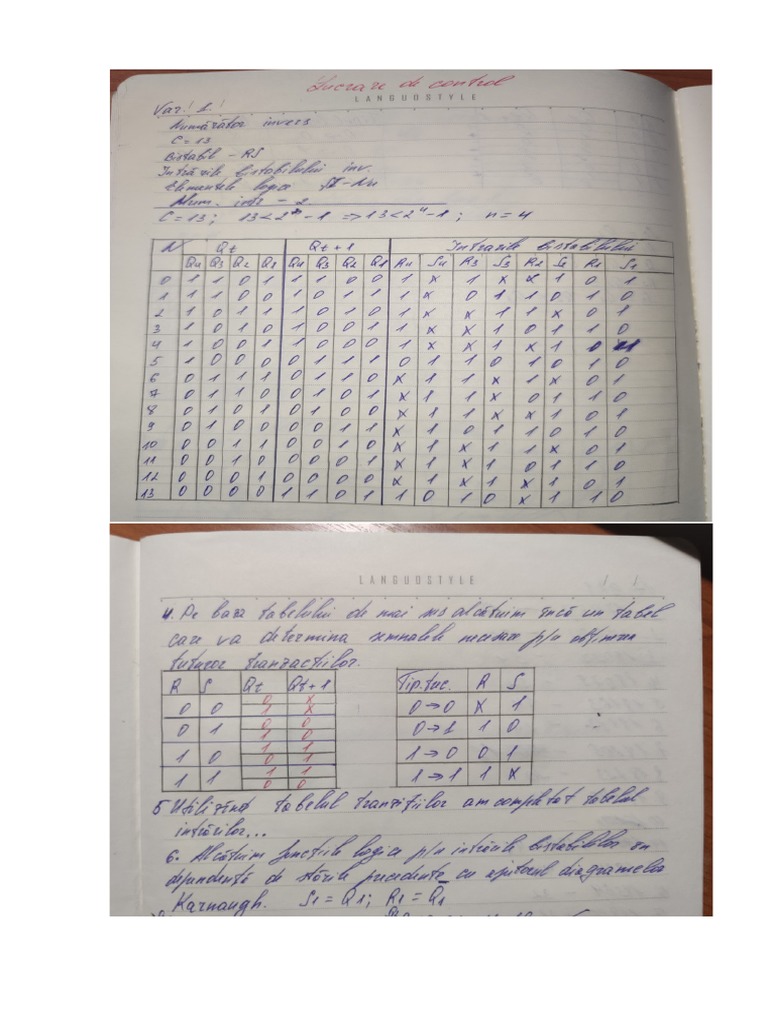 Lucrare de control
LANGUOSTYLE
Var. 1.
Numărător invers
C=13
Bistabil - RS
Intrările bistabilului inv.
Elementele logice ȘI-Nu
Num. intr - 2.
C=13; 13<2ⁿ-1 => 13<2⁴-1; n=4
N Qt Qt+1 Intrările bistabilului
Q4 Q3 Q2 Q1 Q4 Q3 Q2 Q1 R4 S4 R3 S3 R2 S2 R1 S1
0 1 1 0 1 1 1 0 0 1 x 1 x x 1 0 1
1 1 1 0 0 1 0 1 1 1 x 0 1 1 0 1 0
2 1 0 1 1 1 0 1 0 1 x x 1 1 x 0 1
3 1 0 1 0 1 0 0 1 1 x x 1 0 1 1 0
4 1 0 0 1 1 0 0 0 1 x x 1 x 1 0 1
5 1 0 0 0 0 1 1 1 0 1 1 0 1 0 1 0
6 0 1 1 1 0 1 1 0 x 1 1 x 1 x 0 1
7 0 1 1 0 0 1 0 1 x 1 1 x 0 1 1 0
8 0 1 0 1 0 1 0 0 x 1 1 x x 1 0 1
9 0 1 0 0 0 0 1 1 x 1 0 1 1 0 1 0
10 0 0 1 1 0 0 1 0 x 1 x 1 1 x 0 1
11 0 0 1 0 0 0 0 1 x 1 x 1 0 1 1 0
12 0 0 0 1 0 0 0 0 x 1 x 1 x 1 0 1
13 0 0 0 0 1 1 0 1 1 0 1 0 x 1 1 0
LANGUOSTYLE
4. Pe baza tabelului de mai sus alcătuim încă un tabel
care va determina semnalele necesare p/u obținerea
tuturor tranzacțiilor.
R S Qt Qt+1
0 0 0 x
1 x
0 1 0 0
1 0
1 0 1 1
0 1
1 1 1 1
0 0
Tip. tuc. R S
0→0 x 1
0→1 1 0
1→0 0 1
1→1 1 x
5 Utilizînd tabelul tranzițiilor am completat tabelul
intrărilor...
6. Alcătuim funcțiile logice p/u intrările bistabililor în
dependență de stările precedente cu ajutorul diagramelor
Karnaugh. S1 = Q1; R1 = Q̅1